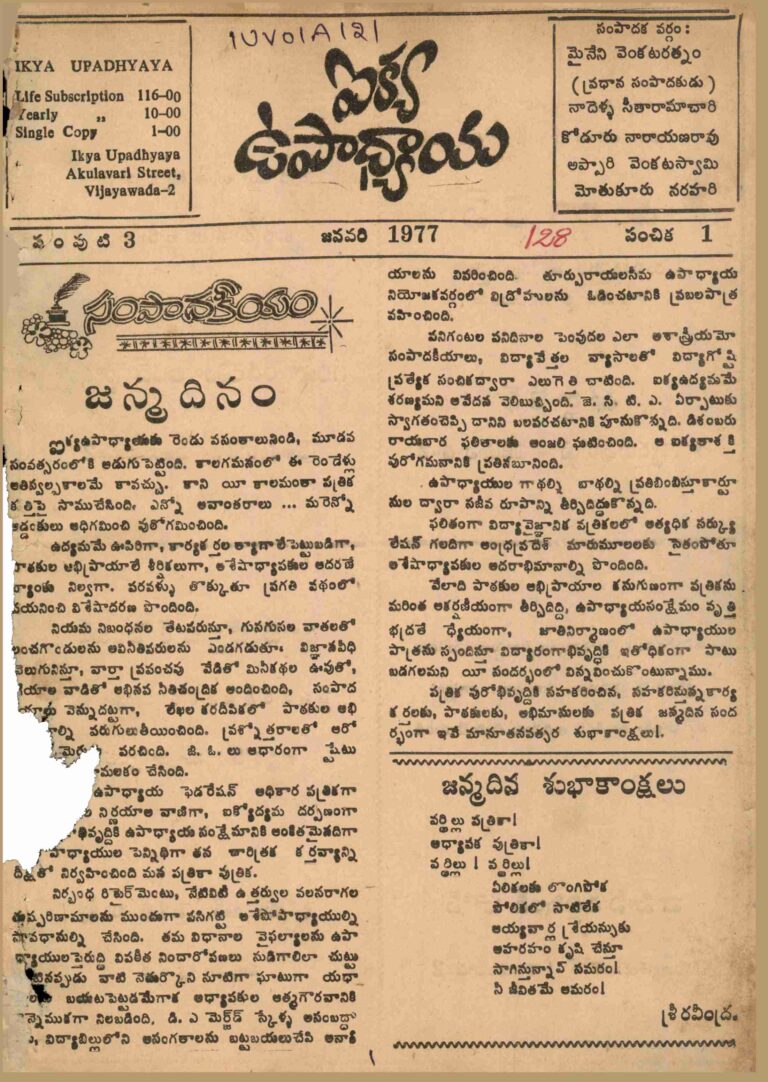 1UV01A121
IKYA UPADHYAYA
Life Subscription 116-00
Yearly ,, 10-00
Single Copy 1-00
Ikya Upadhyaya
Akulavari Street,
Vijayawada-2
ఐక్య
ఉపాధ్యాయ
సంపాదక వర్గం :
మైనేని వెంకటరత్నం
( ప్రధాన సంపాదకుడు )
నాదెళ్ళ సీతారామాచారి
కోడూరు నారాయణరావు
అప్పారి వెంకటస్వామి
మోతుకూరు నరహరి
సంపుటి 3 జనవరి 1977 128 సంచిక 1
సంపాదకీయం
జన్మదినం
ఐక్యఉపాధ్యాయకు రెండు వసంతాలునిండి, మూడవ
సంవత్సరంలోకి అడుగుపెట్టింది. కాలగమనంలో ఈ రెండేళ్లు
అతిస్వల్పకాలమే కావచ్చు. కాని యీ కాలమంతా పత్రిక
కత్తిపై సాముచేసింది. ఎన్నో అవాంతరాలు ... మరెన్నో
అడ్డంకులు అధిగమించి పురోగమించింది.
ఉద్యమమే ఊపిరిగా, కార్యకర్తల త్యాగాలేపెట్టుబడిగా,
పాఠకుల అభిప్రాయాలే శీర్షికలుగా, అశేషాధ్యాపకుల ఆదరణే
బ్యాంకు నిల్వగా. వరవళ్ళు తొక్కుతూ ప్రగతి పథంలో
పయనించి విశేషాదరణ పొందింది.
నియమ నిబంధనల తేటపరుస్తూ, గునగునల వాతలతో
లంచగొండులను అవినీతిపరులను ఎండగడుతూ: విజ్ఞానవీధి
వెలుగునిస్తూ, వార్తా ప్రపంచపు వేడితో మినీకథల ఊపుతో,
గేయాల వాడితో అభినవ నీతిచంద్రిక అందించింది, సంపాద
వెన్నుదట్టగా, లేఖల కరదీపికలో పాఠకుల అభి
పరుగులుతీయించింది. ప్రశ్నోత్తరాలతో ఆరో
వరచింది. జి. ఓ. లు ఆధారంగా స్టేటు
మలకం చేసింది.
ఉపాధ్యాయ ఫెడరేషన్ అధికార పత్రికగా
నిర్ణయాల వాణిగా, ఐక్యోద్యమ దర్పణంగా
భివృద్ధికి ఉపాధ్యాయ సంక్షేమానికి అంకితమైనదిగా
పాధ్యాయుల పెన్నిధిగా తన చారిత్రక కర్తవ్యాన్ని
దీక్షతో నిర్వహించింది మన పత్రికా పుత్రిక.
నిర్బంధ రిటైర్‌మెంటు, నేటివిటీ ఉత్తర్వుల వలనరాగల
దుష్పరిణామాలను ముందుగా పసిగట్టి అశేషోపాధ్యాయుల్ని
సావధామల్ని చేసింది. తమ విధానాల వైఫల్యాలను ఉపా
ధ్యాయులపైరుద్ది విపరీత నిందారోపణలు సుడిగాలిలా చుట్టు
వాటి నెదుర్కొని సూటిగా ఘాటుగా యధా
బయటపెట్టడమేగాక అధ్యాపకుల ఆత్మగౌరవానికి
వెన్నెముకగా నిలబడింది. డి. ఎ మెర్జ్‌డ్ స్కేళ్ళ అసంబద్ధా
విద్యాబిల్లులోని అసంగతాలను బట్టబయలుచేసి అనాక
యాలను వివరించింది. తూర్పురాయలసీమ ఉపాధ్యాయ
నియోజకవర్గంలో విద్రోహులను ఓడించటానికి ప్రబలపాత్ర
వహించింది.
పనిగంటల పనిదినాల పెంపుదల ఎలా అశాస్త్రీయమో
సంపాదకీయాలు, విద్యావేత్తల వ్యాసాలతో విద్యాగోష్ఠి
ప్రత్యేక సంచికద్వారా ఎలుగెత్తి చాటింది. ఐక్యఉద్యమమే
శరణ్యమని ఆవేదన వెలిబుచ్చింది. జె. సి. టి. ఎ. ఏర్పాటుకు
స్వాగతంచెప్పి దానిని బలపరచటానికి పూనుకొన్నది. డిశంబరు
రాయబార ఫలితాలకు అంజలి ఘటించింది. ఆ ఐక్యతాశక్తి
పురోగమనానికి ప్రతినబూనింది.
ఉపాధ్యాయుల గాథల్ని బాథల్ని ప్రతిబింబిస్తూకార్టూ
నుల ద్వారా సజీవ రూపాన్ని తీర్చిదిద్దుకొన్నది.
ఫలితంగా విద్యావైజ్ఞానిక పత్రికలలో అత్యధిక సర్క్యు
లేషన్ గలదిగా ఆంధ్రప్రదేశ్ మారుమూలలకు సైతంపోతూ
అశేషాధ్యాపకుల ఆదరాభిమానాల్ని పొందింది.
వేలాది పాఠకుల అభిప్రాయాల కనుగుణంగా పత్రికను
మరింత ఆకర్షణీయంగా తీర్చిదిద్ది, ఉపాధ్యాయసంక్షేమం వృత్తి
భద్రతే ధ్యేయంగా, జాతినిర్మాణంలో ఉపాధ్యాయుల
పాత్రను స్పందిస్తూ విద్యారంగాభివృద్ధికి ఇతోధికంగా పాటు
బడగలమని యీ సందర్భంలో విన్నవించుకొంటున్నాము.
పత్రిక పురోభివృద్ధికి సహకరించిన, సహకరిస్తున్నకార్య
కర్తలకు, పాఠకులకు, అభిమానులకు పత్రిక జన్మదిన సంద
ర్భంగా ఇవే మానూతనవత్సర శుభాకాంక్షలు!.
జన్మదిన శుభాకాంక్షలు
వర్ధిల్లు పత్రికా!
అధ్యాపక పుత్రికా!
వర్ధిల్లు ! వర్ధిల్లు!
ఏలికలకు లొంగిపోక
పోలికలో సాటిలేక
అయ్యవార్ల శ్రేయస్సుకు
అహరహం కృషి చేస్తూ
సాగిస్తున్నావ్ సమరం!
నీ జీవితమే అమరం!
శ్రీ రవీంద్ర.